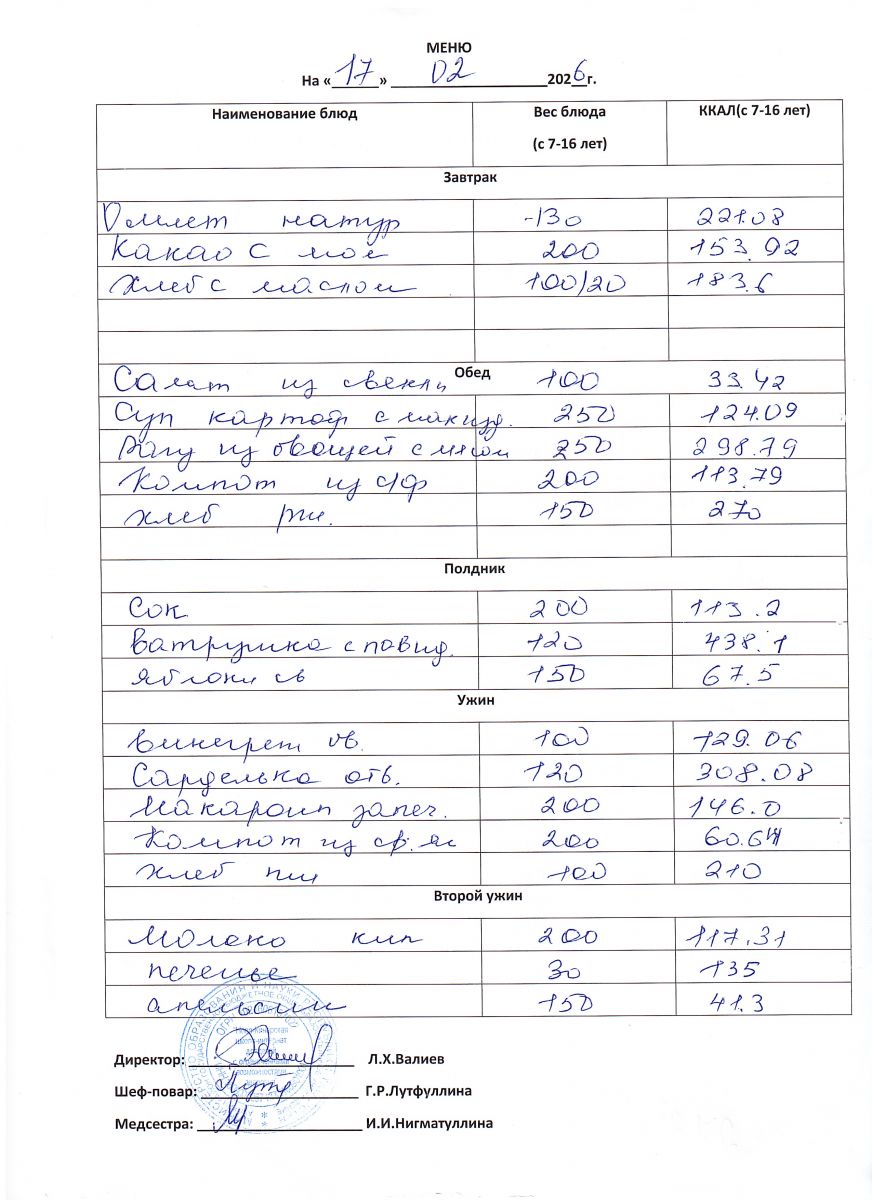 МЕНЮ
На «17» 02 2026г.
Наименование блюд Вес блюда (с 7-16 лет) ККАЛ(с 7-16 лет)
Завтрак
Омлет натур -130 221.08
Какао с мол 200 153.92
Хлеб с маслом 100/20 183.6
Обед
Салат из свеклы 100 33.42
Суп картоф с макизд. 250 124.09
Рагу из овощей с мясом 250 298.79
Компот из с/ф 200 113.79
хлеб рж. 150 270
Полдник
Сок 200 113.2
Ватрушка с повид. 120 438.1
Яблоки св 150 67.5
Ужин
Винегрет ов. 100 129.06
Сарделька отв. 120 308.08
Макароны запеч. 200 146.0
Компот из св. яб 200 60.64
Хлеб пш 100 210
Второй ужин
Молоко кип 200 117.31
печенье 30 135
апельсин 150 41.3
Директор: Л.Х.Валиев
Шеф-повар: Г.Р.Лутфуллина
Медсестра: И.И.Нигматуллина